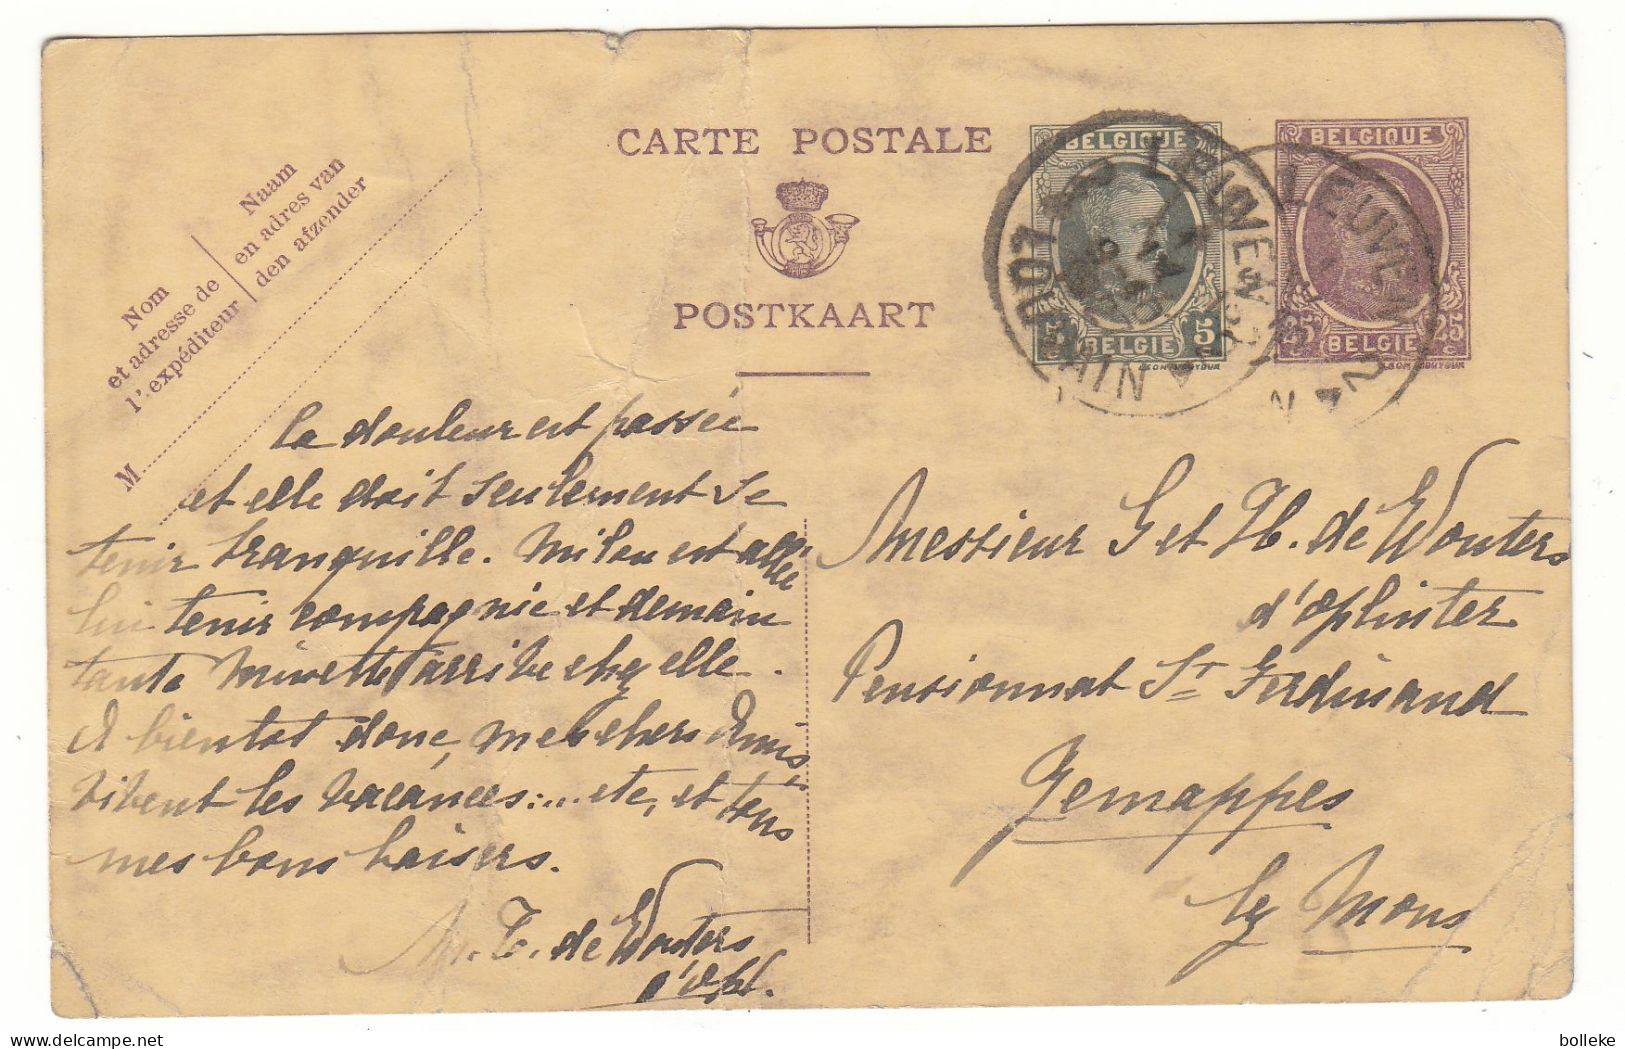 CARTE POSTALE
POSTKAART
Nom
et adresse de
l'expéditeur
Naam
en adres van
den afzender
M
BELGIQUE
5 5
BELGIE
BELGIQUE
25 25
BELGIE
LEUVEN
LOUVAIN
LEUVEN 2
la douleur est passée
et elle doit seulement se
tenir tranquille. Milou est allée
lui tenir compagnie et demain
tante Minette arrive chez elle.
A bientot donc, mes chers Amis,
vivent les vacances:... etc, et tous
mes bons baisers.
de Wouters
d'Opl.
Messieur G et H. de Wouters
d'Oplinter
Pensionnat St Ferdinand
Jemappes
lez Mons
bolleke